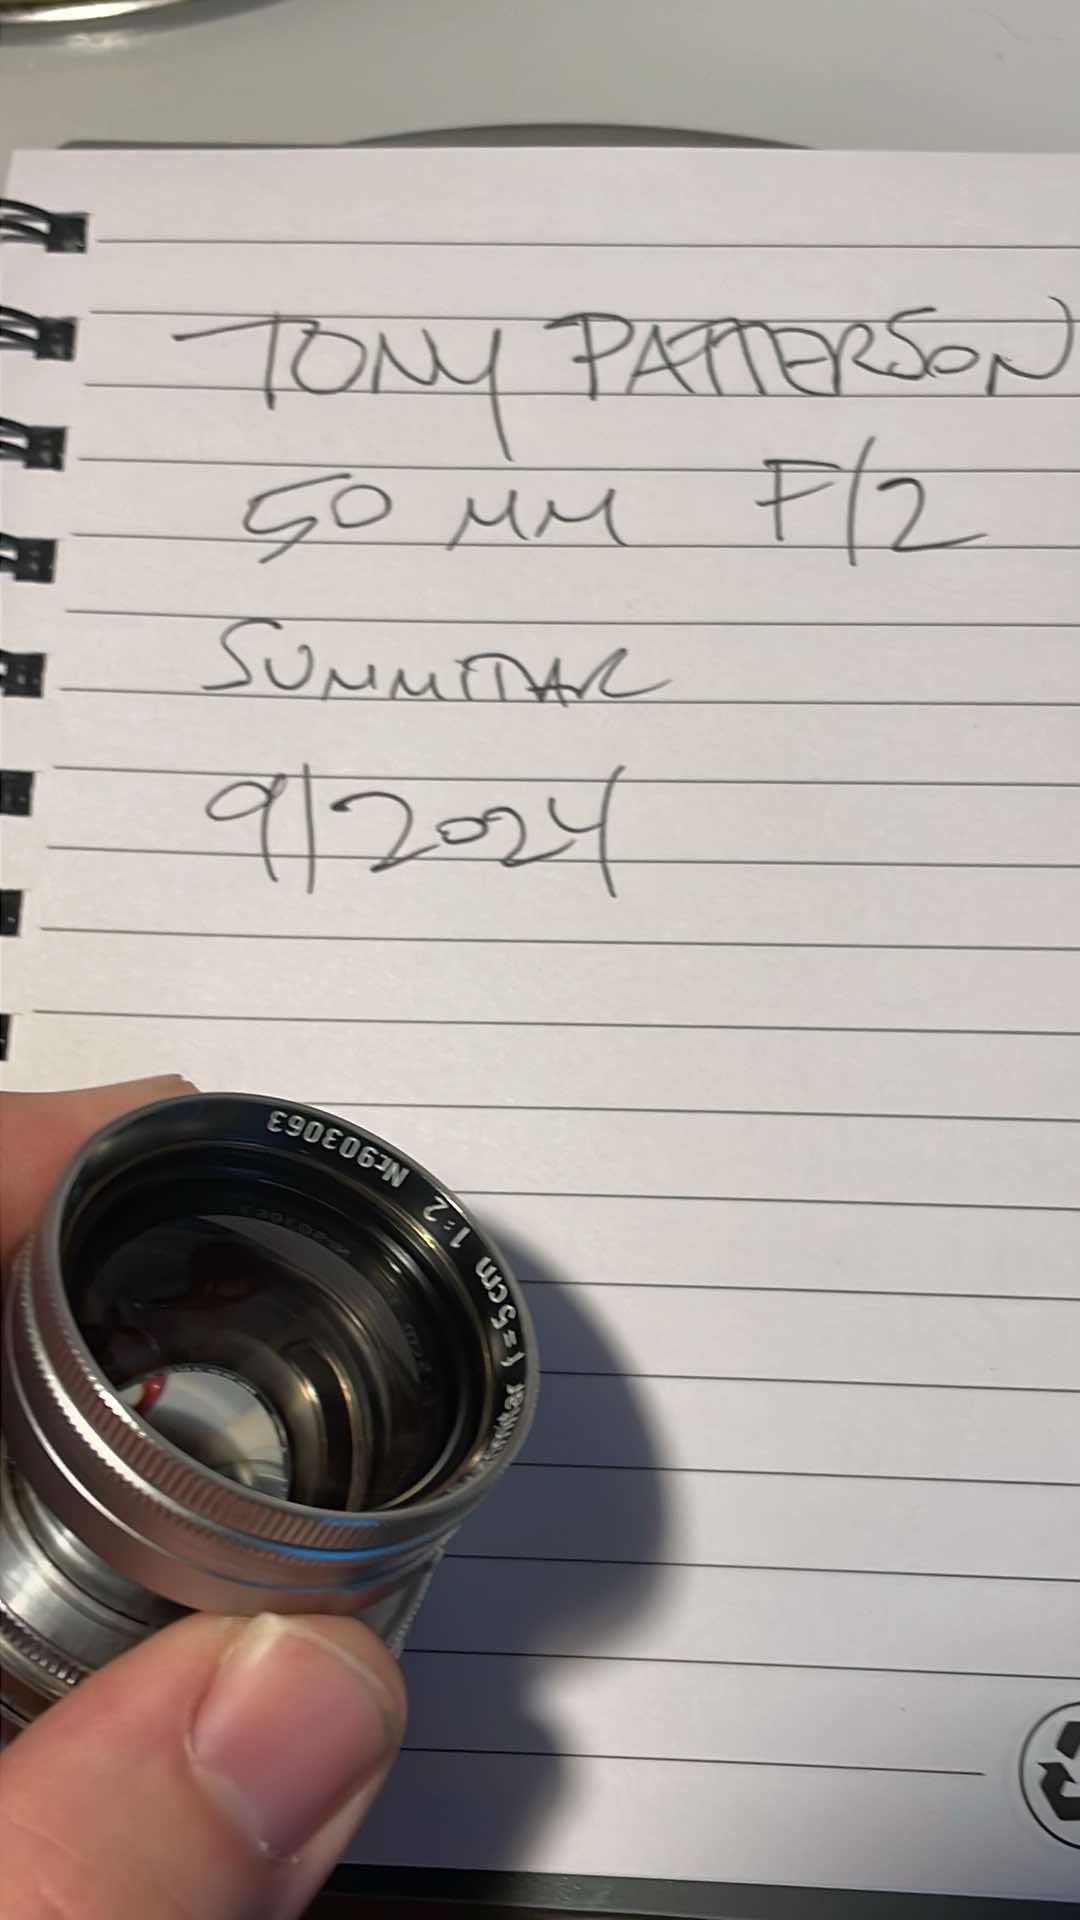 TONY PATTERSON
50 MM F/2
SUMMITAR
9/2024
f=5cm 1:2 Nr903063